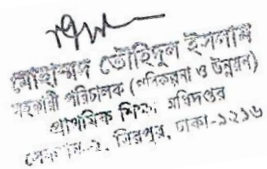 মোহাম্মদ তৌহিদুল ইসলাম
সহকারী পরিচালক (পরিকল্পনা ও উন্নয়ন)
প্রাথমিক শিক্ষা অধিদপ্তর
মিরপুর, ঢাকা-১২১৬